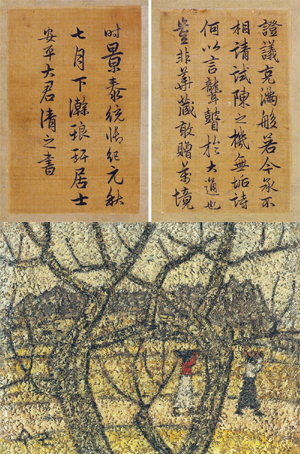 證議充滿般若今承不
相請試陳之機無垢詩
何以言聾瞽於大道也
豈非華藏敢贈境
時景泰統臨紀元秋
七月下澣琅玕居士
安平大君清之書